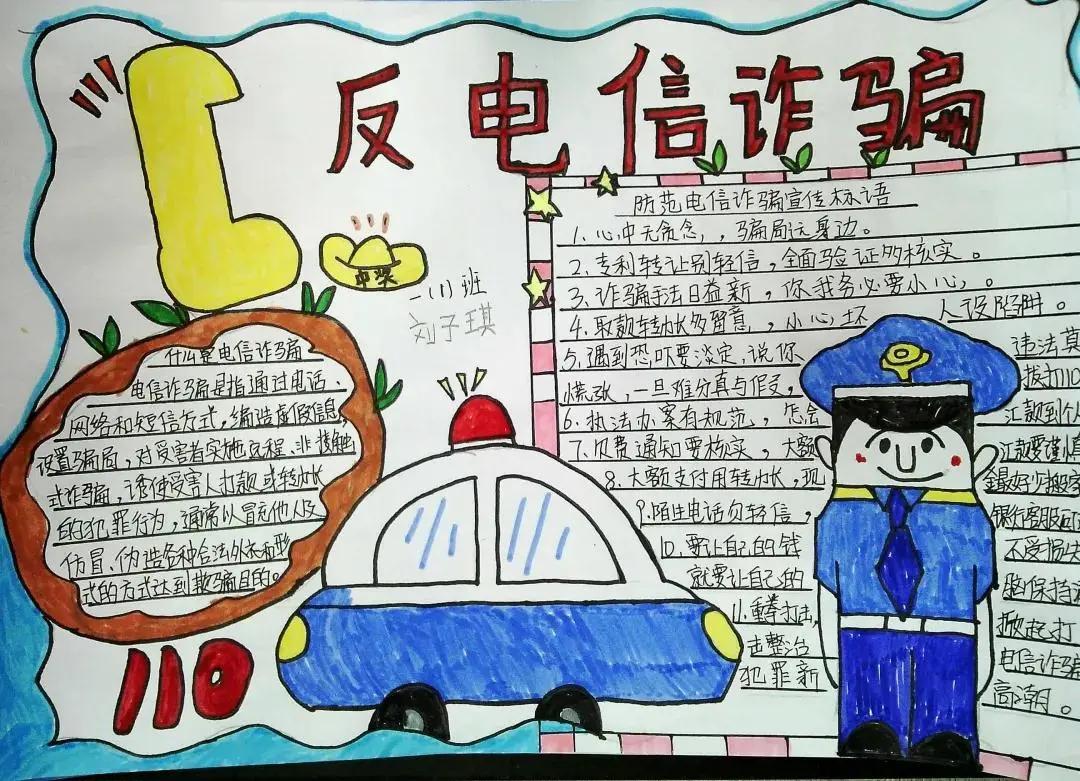 反电信诈骗
中奖
一(1)班
刘子琪
什么是电信诈骗
电信诈骗是指通过电话、
网络和短信方式,编造虚假信息,
设置骗局,对受害者实施远程、非接触
式诈骗,诱使受害人打款或转帐
的犯罪行为,通常以冒充他人及
仿冒、伪造各种合法外衣和形
式的方式达到欺骗目的。
110
防范电信诈骗宣传标语
1.心中无贪念,,骗局远身边。
2.专利转让别轻信,全面验证多核实。
3.诈骗手法日益新,你我务必要小心,。
4.取款转帐多留意,小心坏人设陷阱。
5.遇到恐吓要淡定,说你 违法莫
慌张,一旦难分真与假, 拨打110
6.执法办案有规范,怎会 汇款到个人
7.欠费通知要核实,大额 汇款要谨慎
8.大额支付用转帐,现 金最好少搬家
9.陌生电话勿轻信, 银行客服
10.要让自己的钱 不受损失
就要让自己的 脑保持
11.重拳打击, 掀起打
击整治 电信诈骗
犯罪新 高潮。